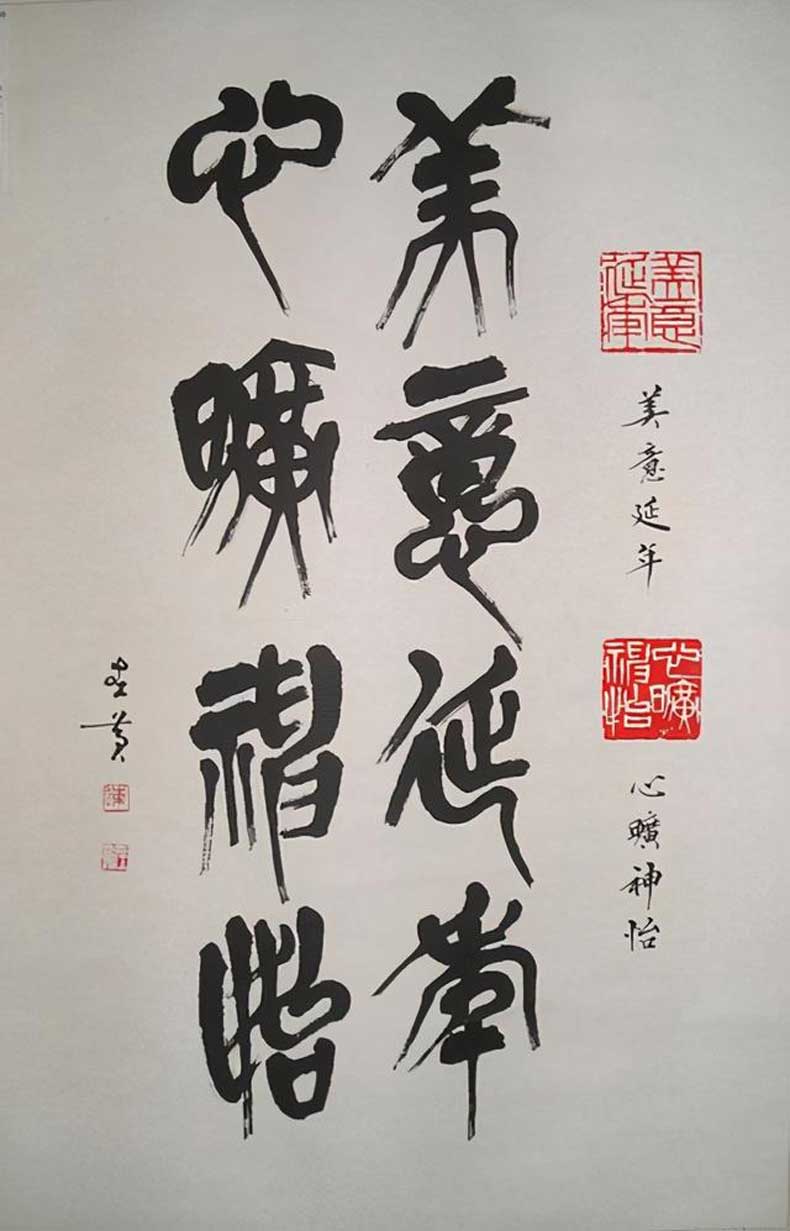 美意延年
美意延年
心曠神怡
心曠神怡
美意延年
心曠神怡